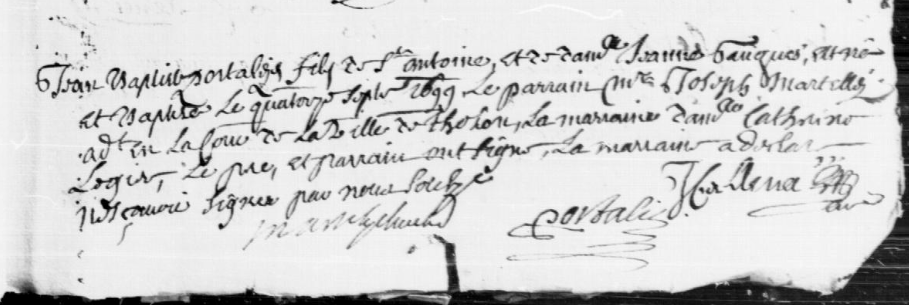 Jean Baptiste portalis fils de Sr antoine, et de damlle Jeanne gauques, est né
et baptisé Le quatorze septbre 1699, Le parrain Mre Joseph Martelly
adt en La Cour de La Ville de tholon, La marraine damlle Catherine
Logier, Le pre, et parrain ont signé, La marraine a declaré
nescavoir signer par nous soubzé
portalis